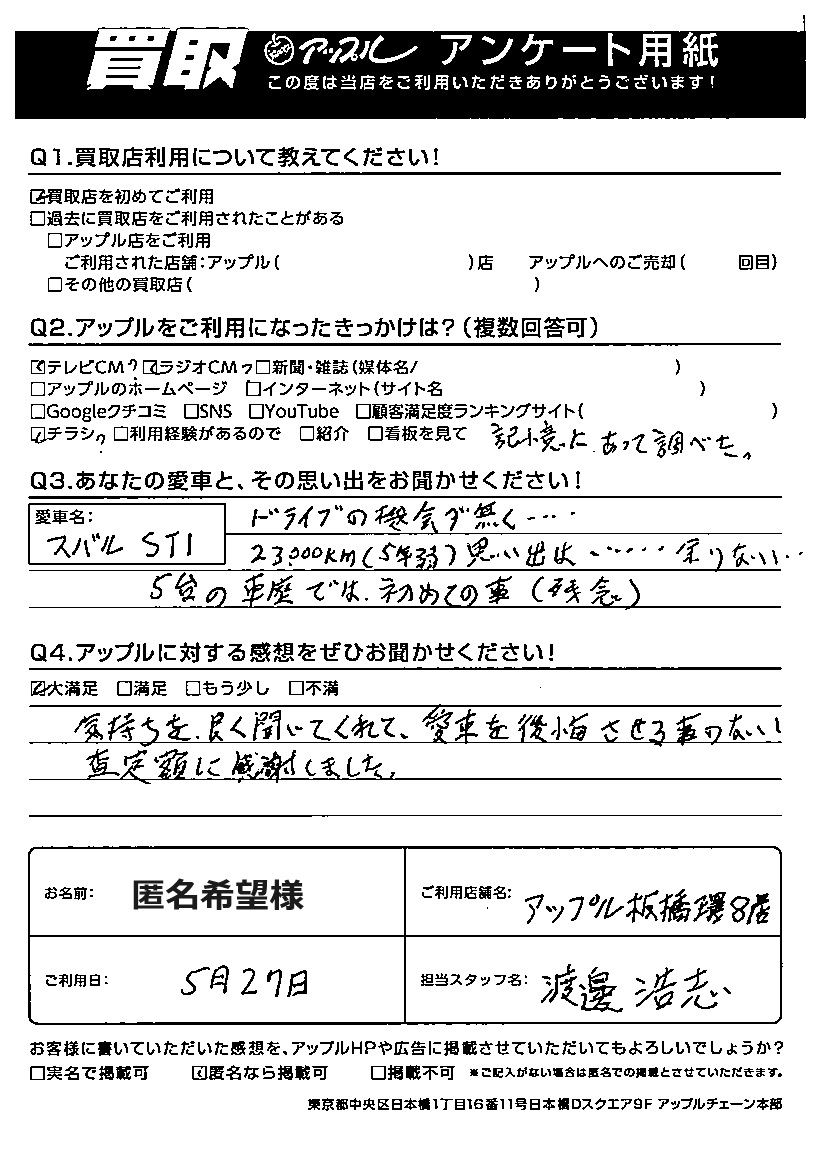 買取 アップル アンケート用紙
この度は当店をご利用いただきありがとうございます!
Q1.買取店利用について教えてください!
☑買取店を初めてご利用
□過去に買取店をご利用されたことがある
□アップル店をご利用
ご利用された店舗:アップル( )店 アップルへのご売却( 回目)
□その他の買取店( )
Q2.アップルをご利用になったきっかけは?(複数回答可)
☑テレビCM? ☑ラジオCM? □新聞・雑誌(媒体名/ )
□アップルのホームページ □インターネット(サイト名 )
□Googleクチコミ □SNS □YouTube □顧客満足度ランキングサイト( )
☑チラシ? □利用経験があるので □紹介 □看板を見て 記憶にあって調べた。
Q3.あなたの愛車と、その思い出をお聞かせください!
愛車名:
スバル STI
ドライブの機会が無く…
23,000km(5年弱)思い出は……余りない…
5台の車歴では、初めての車(残念)
Q4.アップルに対する感想をぜひお聞かせください!
☑大満足 □満足 □もう少し □不満
気持ちを、良く聞いてくれて、愛車を後悔させる事のない!
査定額に感謝しました。
お名前: 匿名希望様
ご利用店舗名: アップル板橋環8店
ご利用日: 5月27日
担当スタッフ名: 渡邊 浩志
お客様に書いていただいた感想を、アップルHPや広告に掲載させていただいてもよろしいでしょうか?
□実名で掲載可 ☑匿名なら掲載可 □掲載不可 ※ご記入がない場合は匿名での掲載とさせていただきます。
東京都中央区日本橋1丁目16番11号日本橋Dスクエア9F アップルチェーン本部